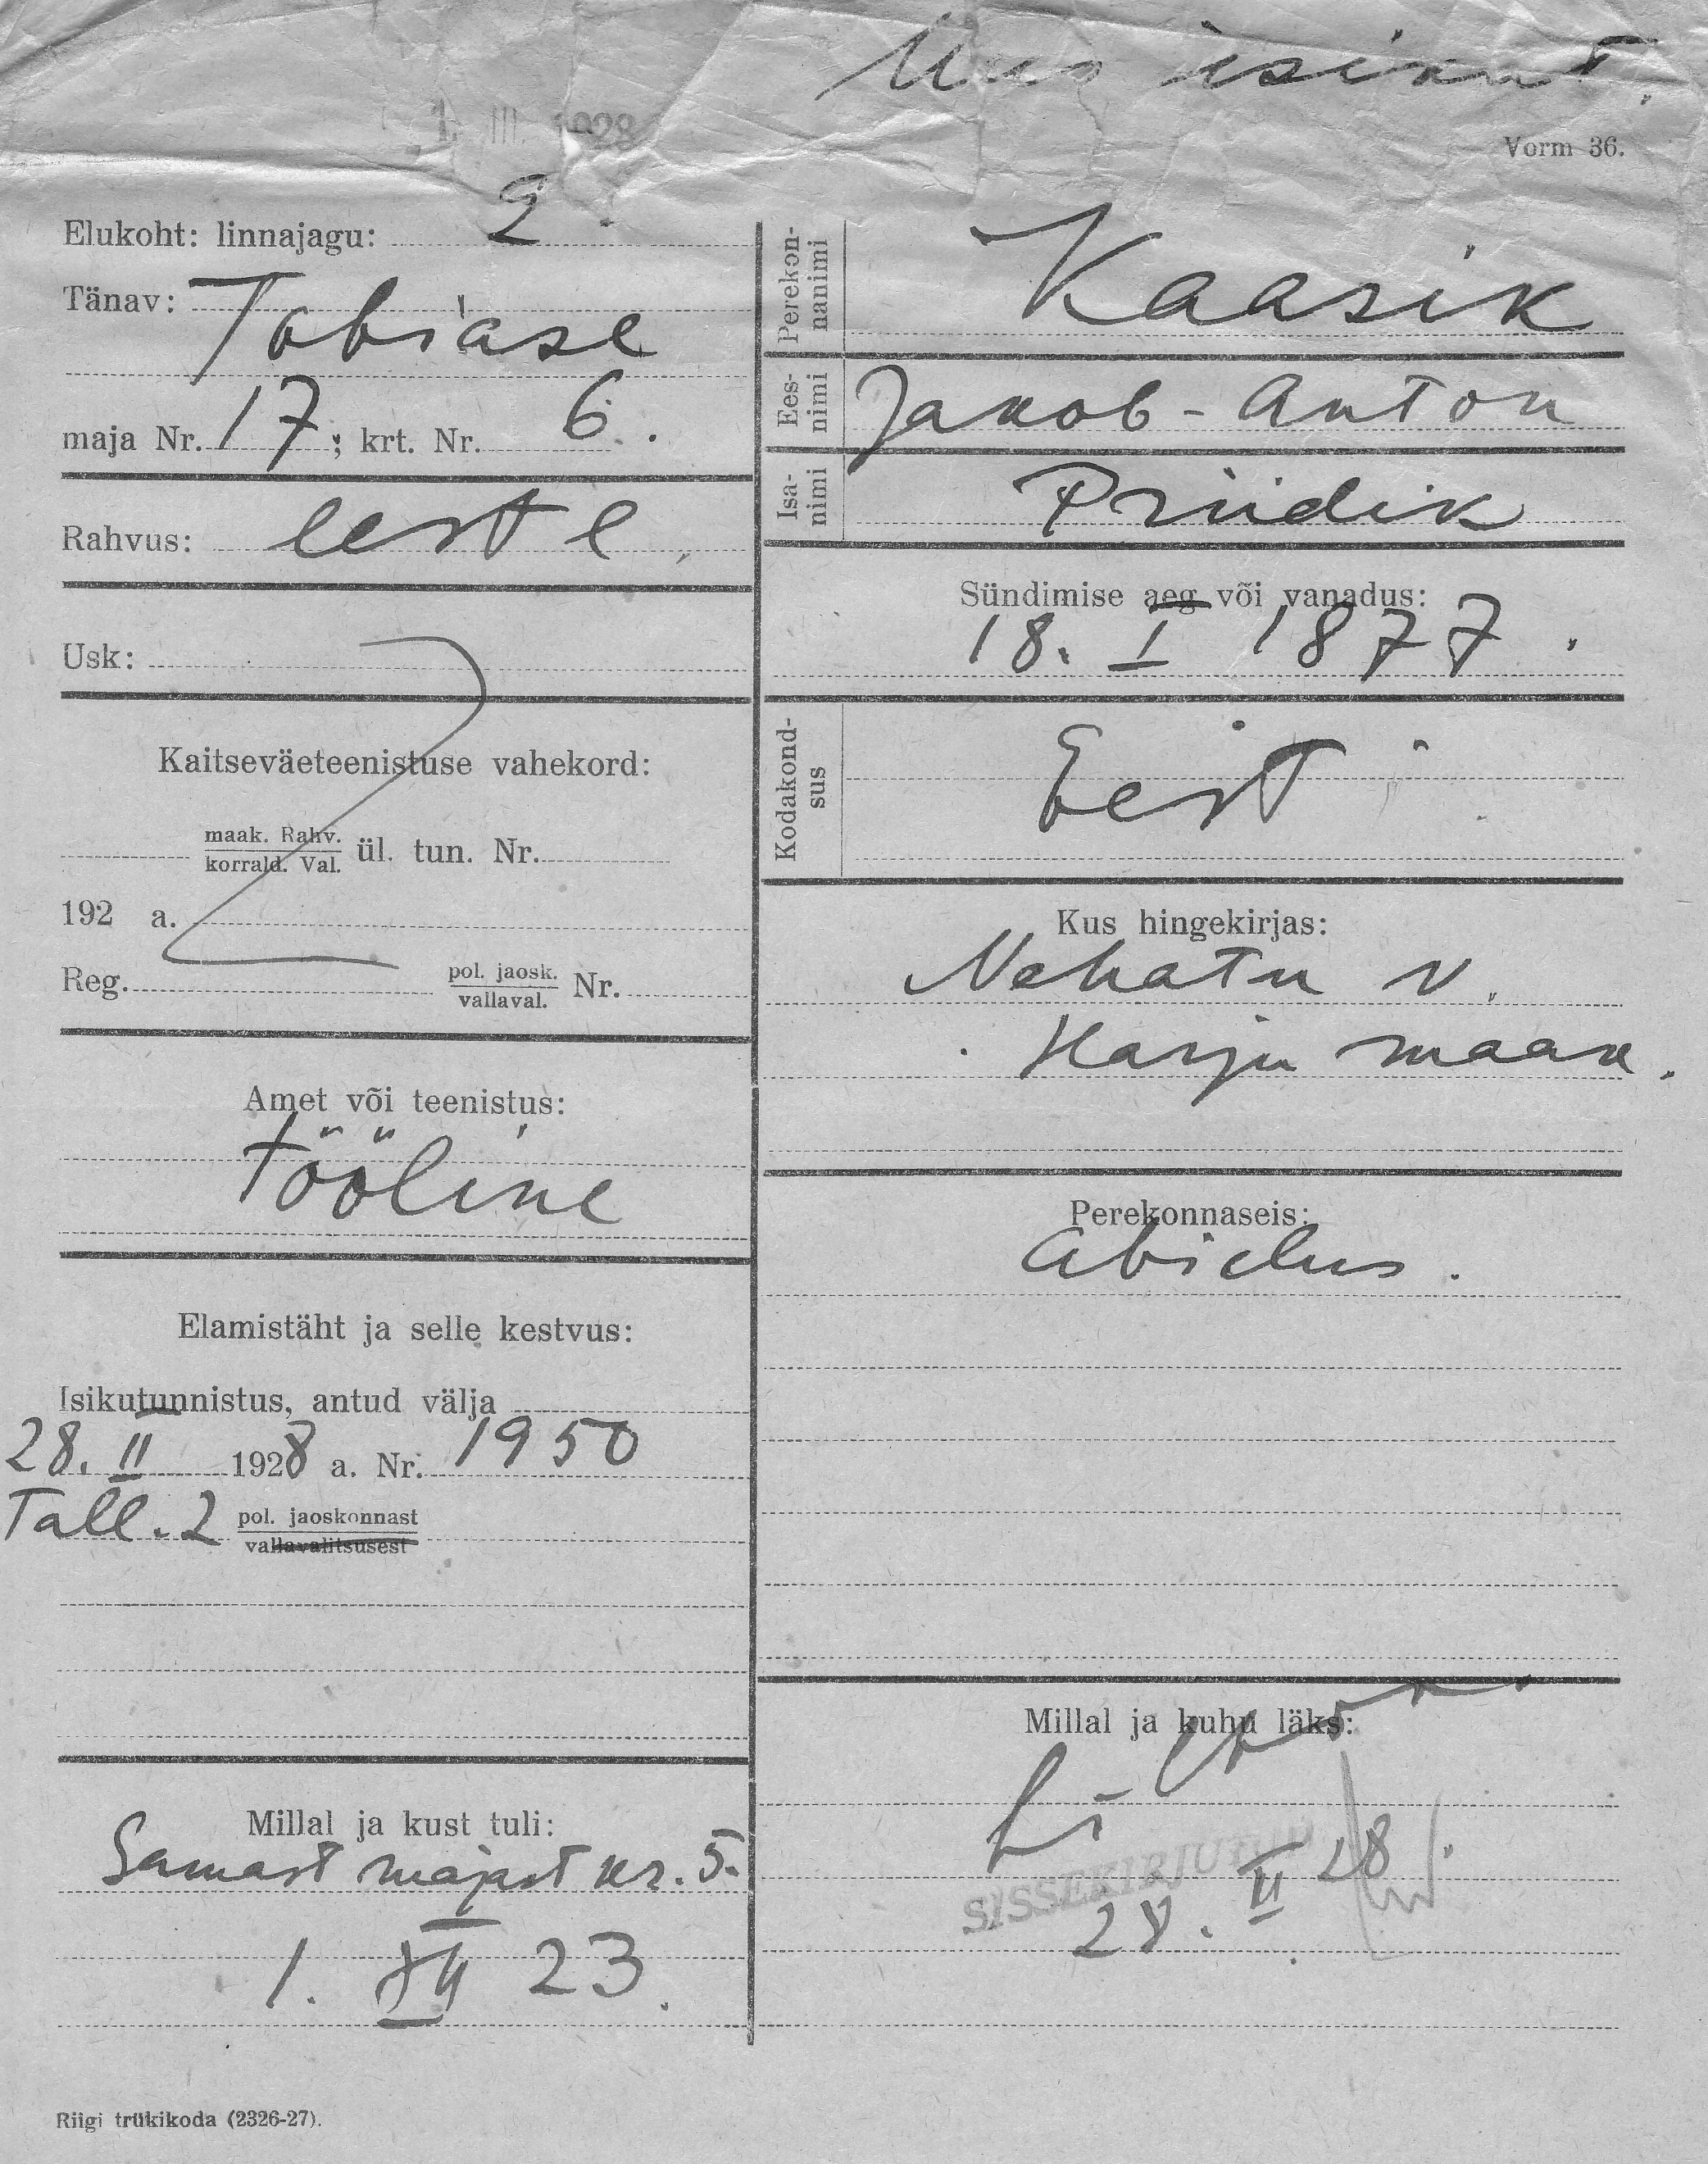 Uus isikut.
1. III. 1928
Vorm 36.
Elukoht: linnajagu: 2.
Tänav: Tobiase
maja Nr. 17; krt. Nr. 6.
Rahvus: eestl.
Usk:
Kaitseväeteenistuse vahekord:
maak. Rahv.
korrald. Val. ül. tun. Nr.
192 a.
Reg. pol. jaosk.
vallaval. Nr.
Amet või teenistus:
tööline
Elamistäht ja selle kestvus:
Isikutunnistus, antud välja
28. II 1928 a. Nr. 1950
Tall. 2 pol. jaoskonnast
vallavalitsusest
Millal ja kust tuli:
Samast majast kr. 5.
1. XII 23.
Riigi trükikoda (2326-27).
Perekon-
nanimi
Kaasik
Ees-
nimi
Jakob-Anton
Isa-
nimi
Priidik
Sündimise aeg või vanadus:
18. I 1877.
Kodakond-
sus
Eesti
Kus hingekirjas:
Nehatu v.
Harju maak.
Perekonnaseis:
abielus.
Millal ja kuhu läks:
SISSEKIRJUTUD
28. II 28.